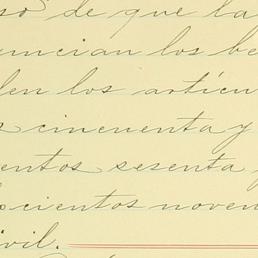 so de que la
uncian los be
den los artícu
s cincuenta y
ientos sesenta y
scientos noven
ivil.